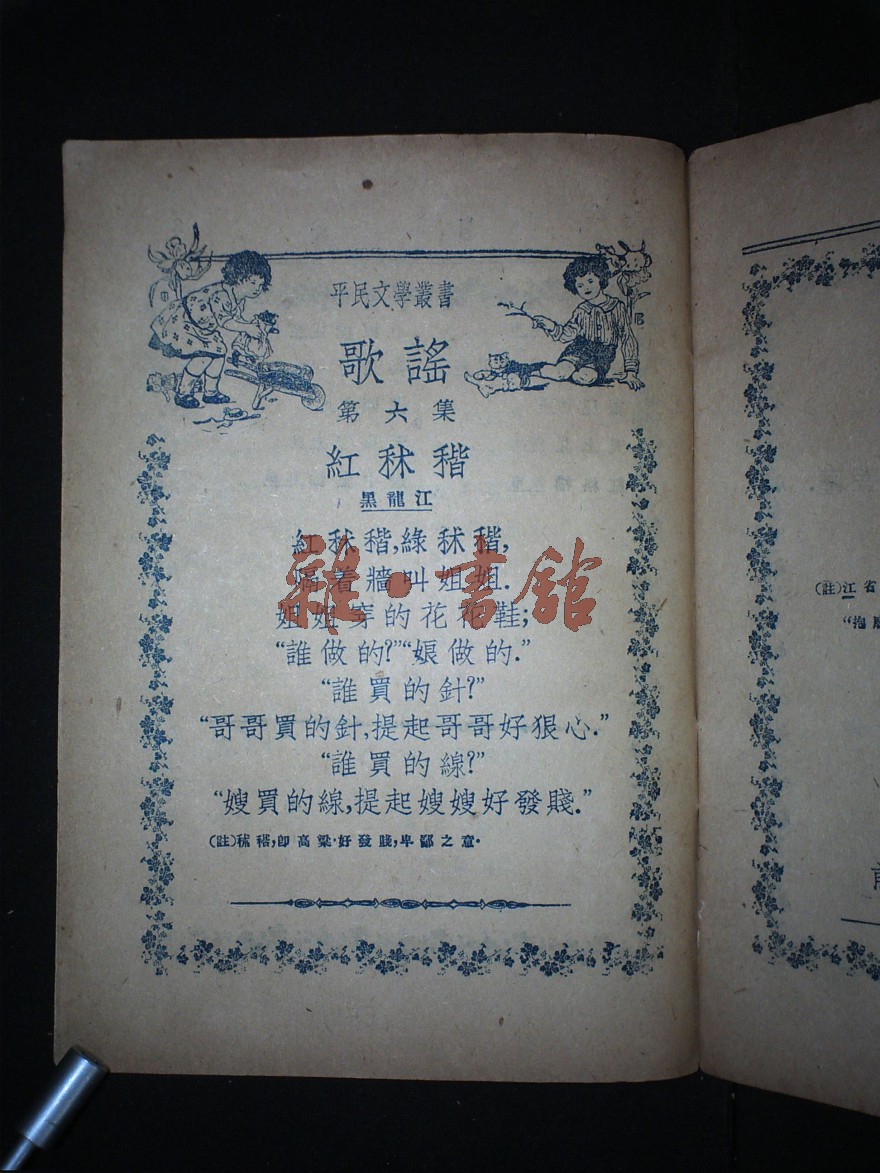 平民文學叢書
歌謠
第六集
紅秫稭
黑龍江
紅秫稭,綠秫稭,
隔着牆叫姐姐.
姐姐穿的花花鞋;
“誰做的?”“娘做的.”
“誰買的針?”
“哥哥買的針,提起哥哥好狠心.”
“誰買的線?”
“嫂買的線,提起嫂嫂好發賤.”
(註)秫稭,卽高粱.好發賤,卑鄙之意.
雜·書館
(註)江省
“抱